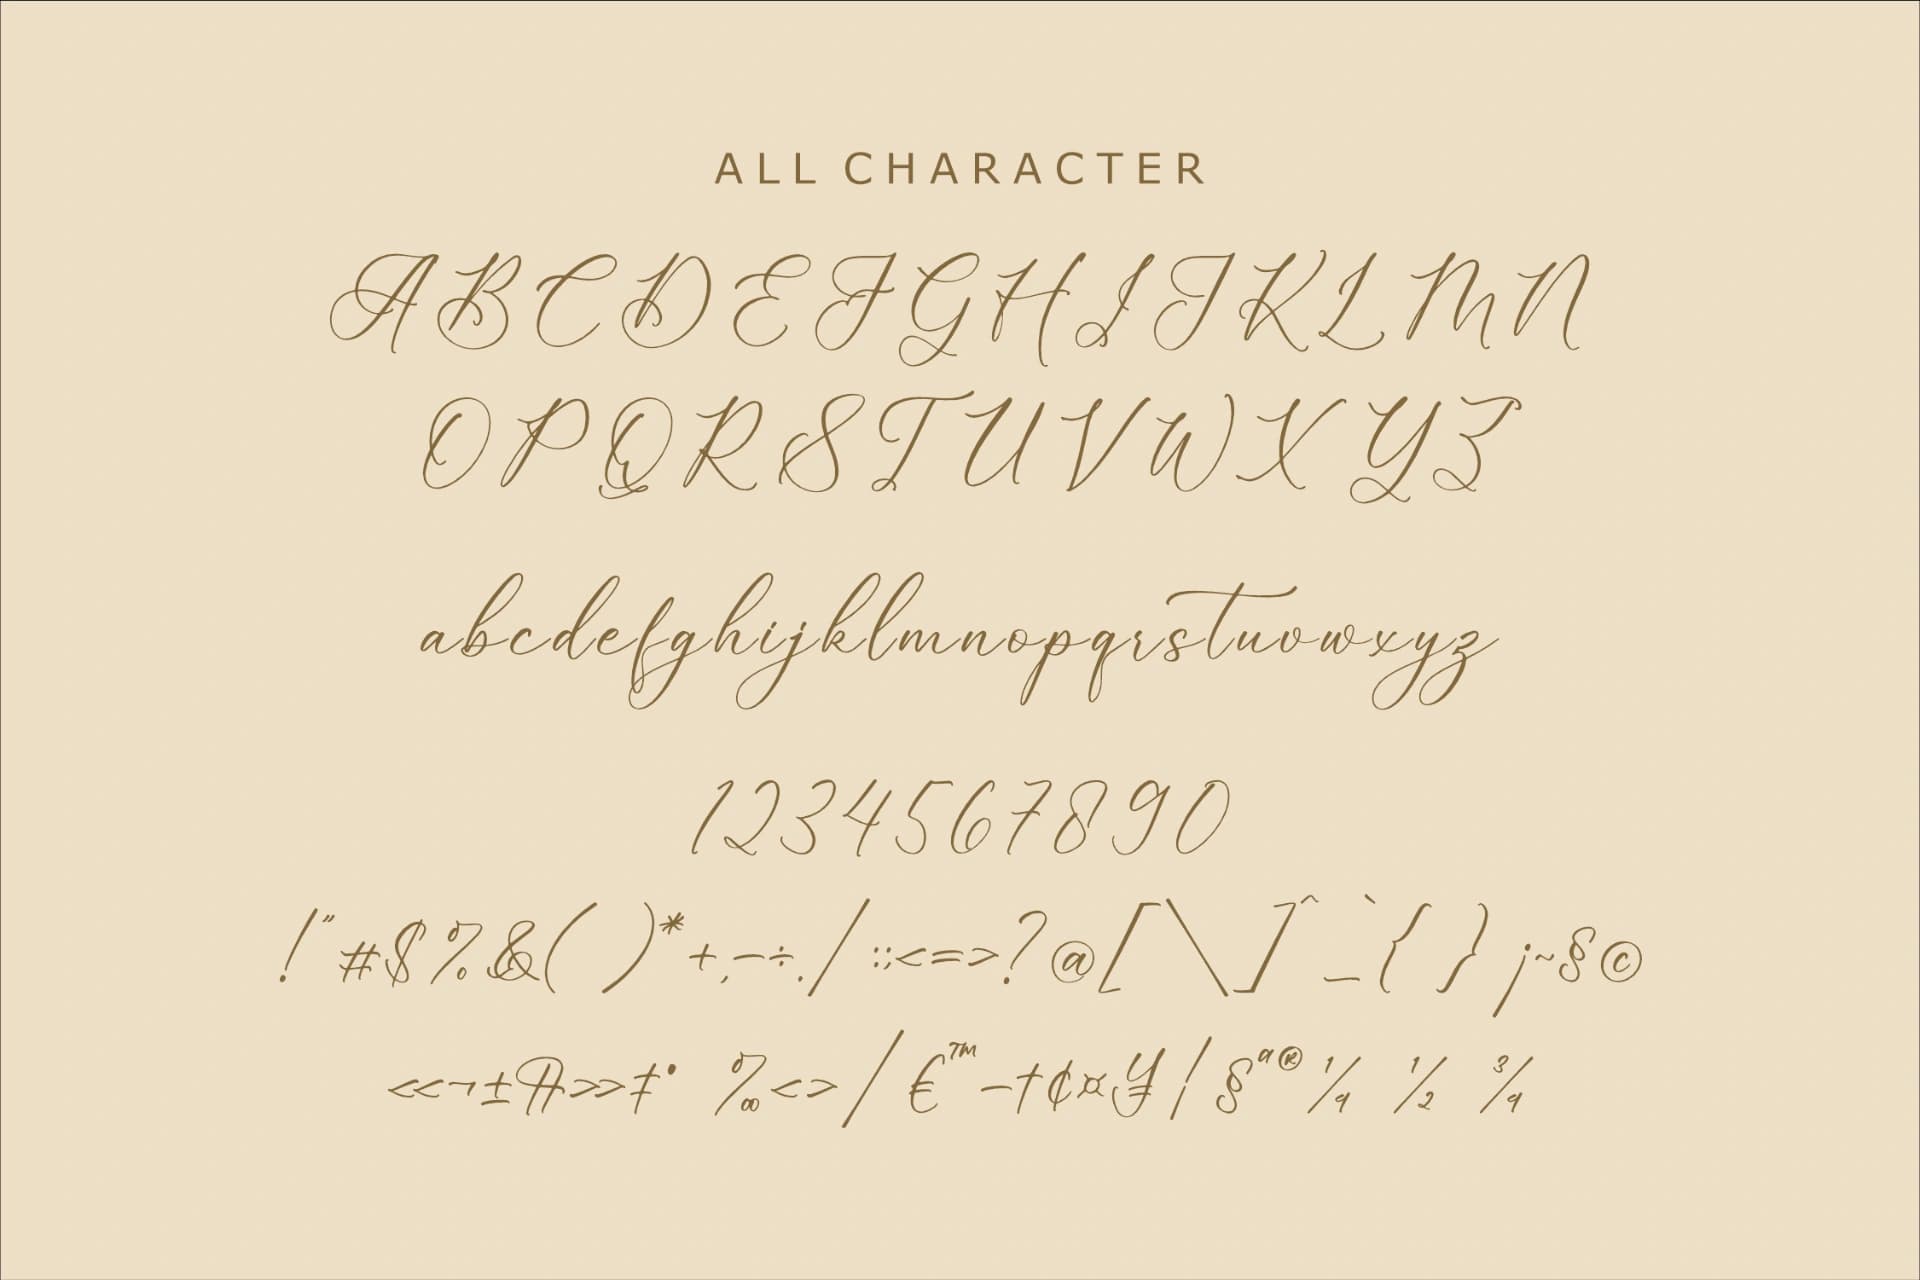 ALL CHARACTER
A B C D E F G H I J K L M N
O P Q R S T U V W X Y Z
abcdefghijklmnopqrstuvwxyz
1234567890
!"#$%&( )*+,-÷./:;<=>?@[\]^_`{ }¡~§©
<<¬±Ɐ>>‡• ‰<>/€™–†¢¤¥¦§ª®¼ ½ ¾